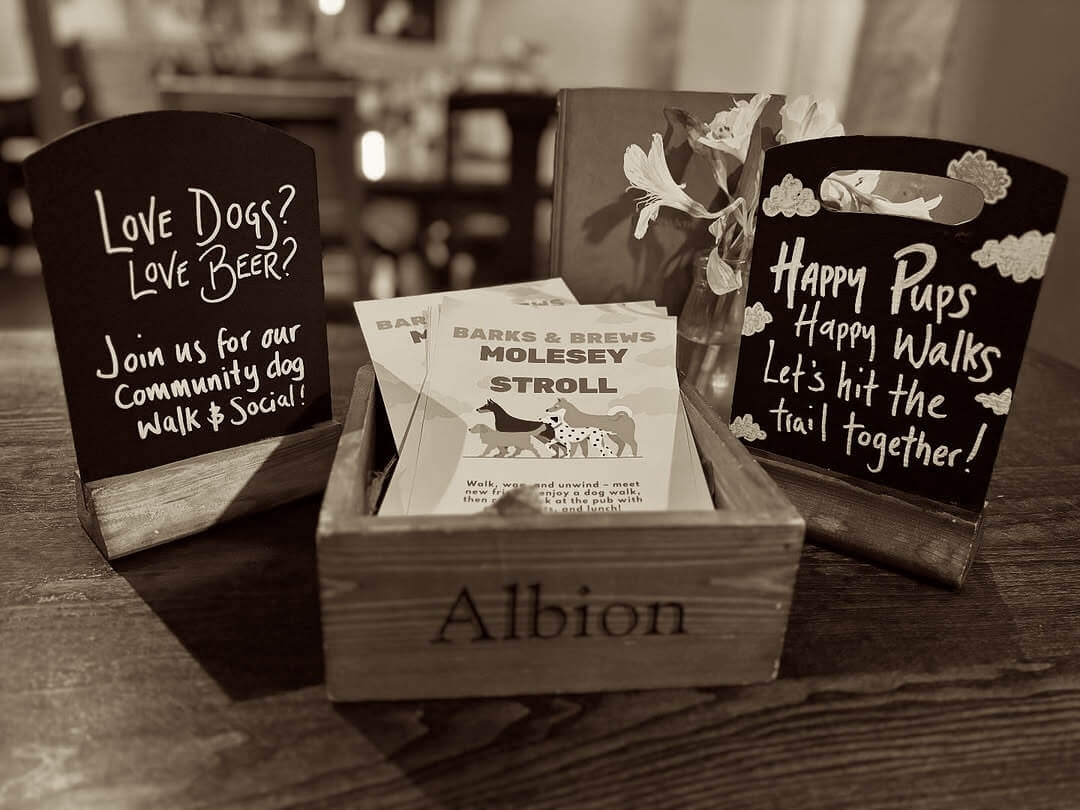 Love Dogs?
Love Beer?
Join us for our
Community dog
Walk & Social!
BAR
M
BARKS & BREWS
MOLESEY
STROLL
Walk, wag and unwind – meet
new enjoy a dog walk,
then at the pub with
and lunch!
Albion
Happy Pups
Happy Walks
Let's hit the
trail together!